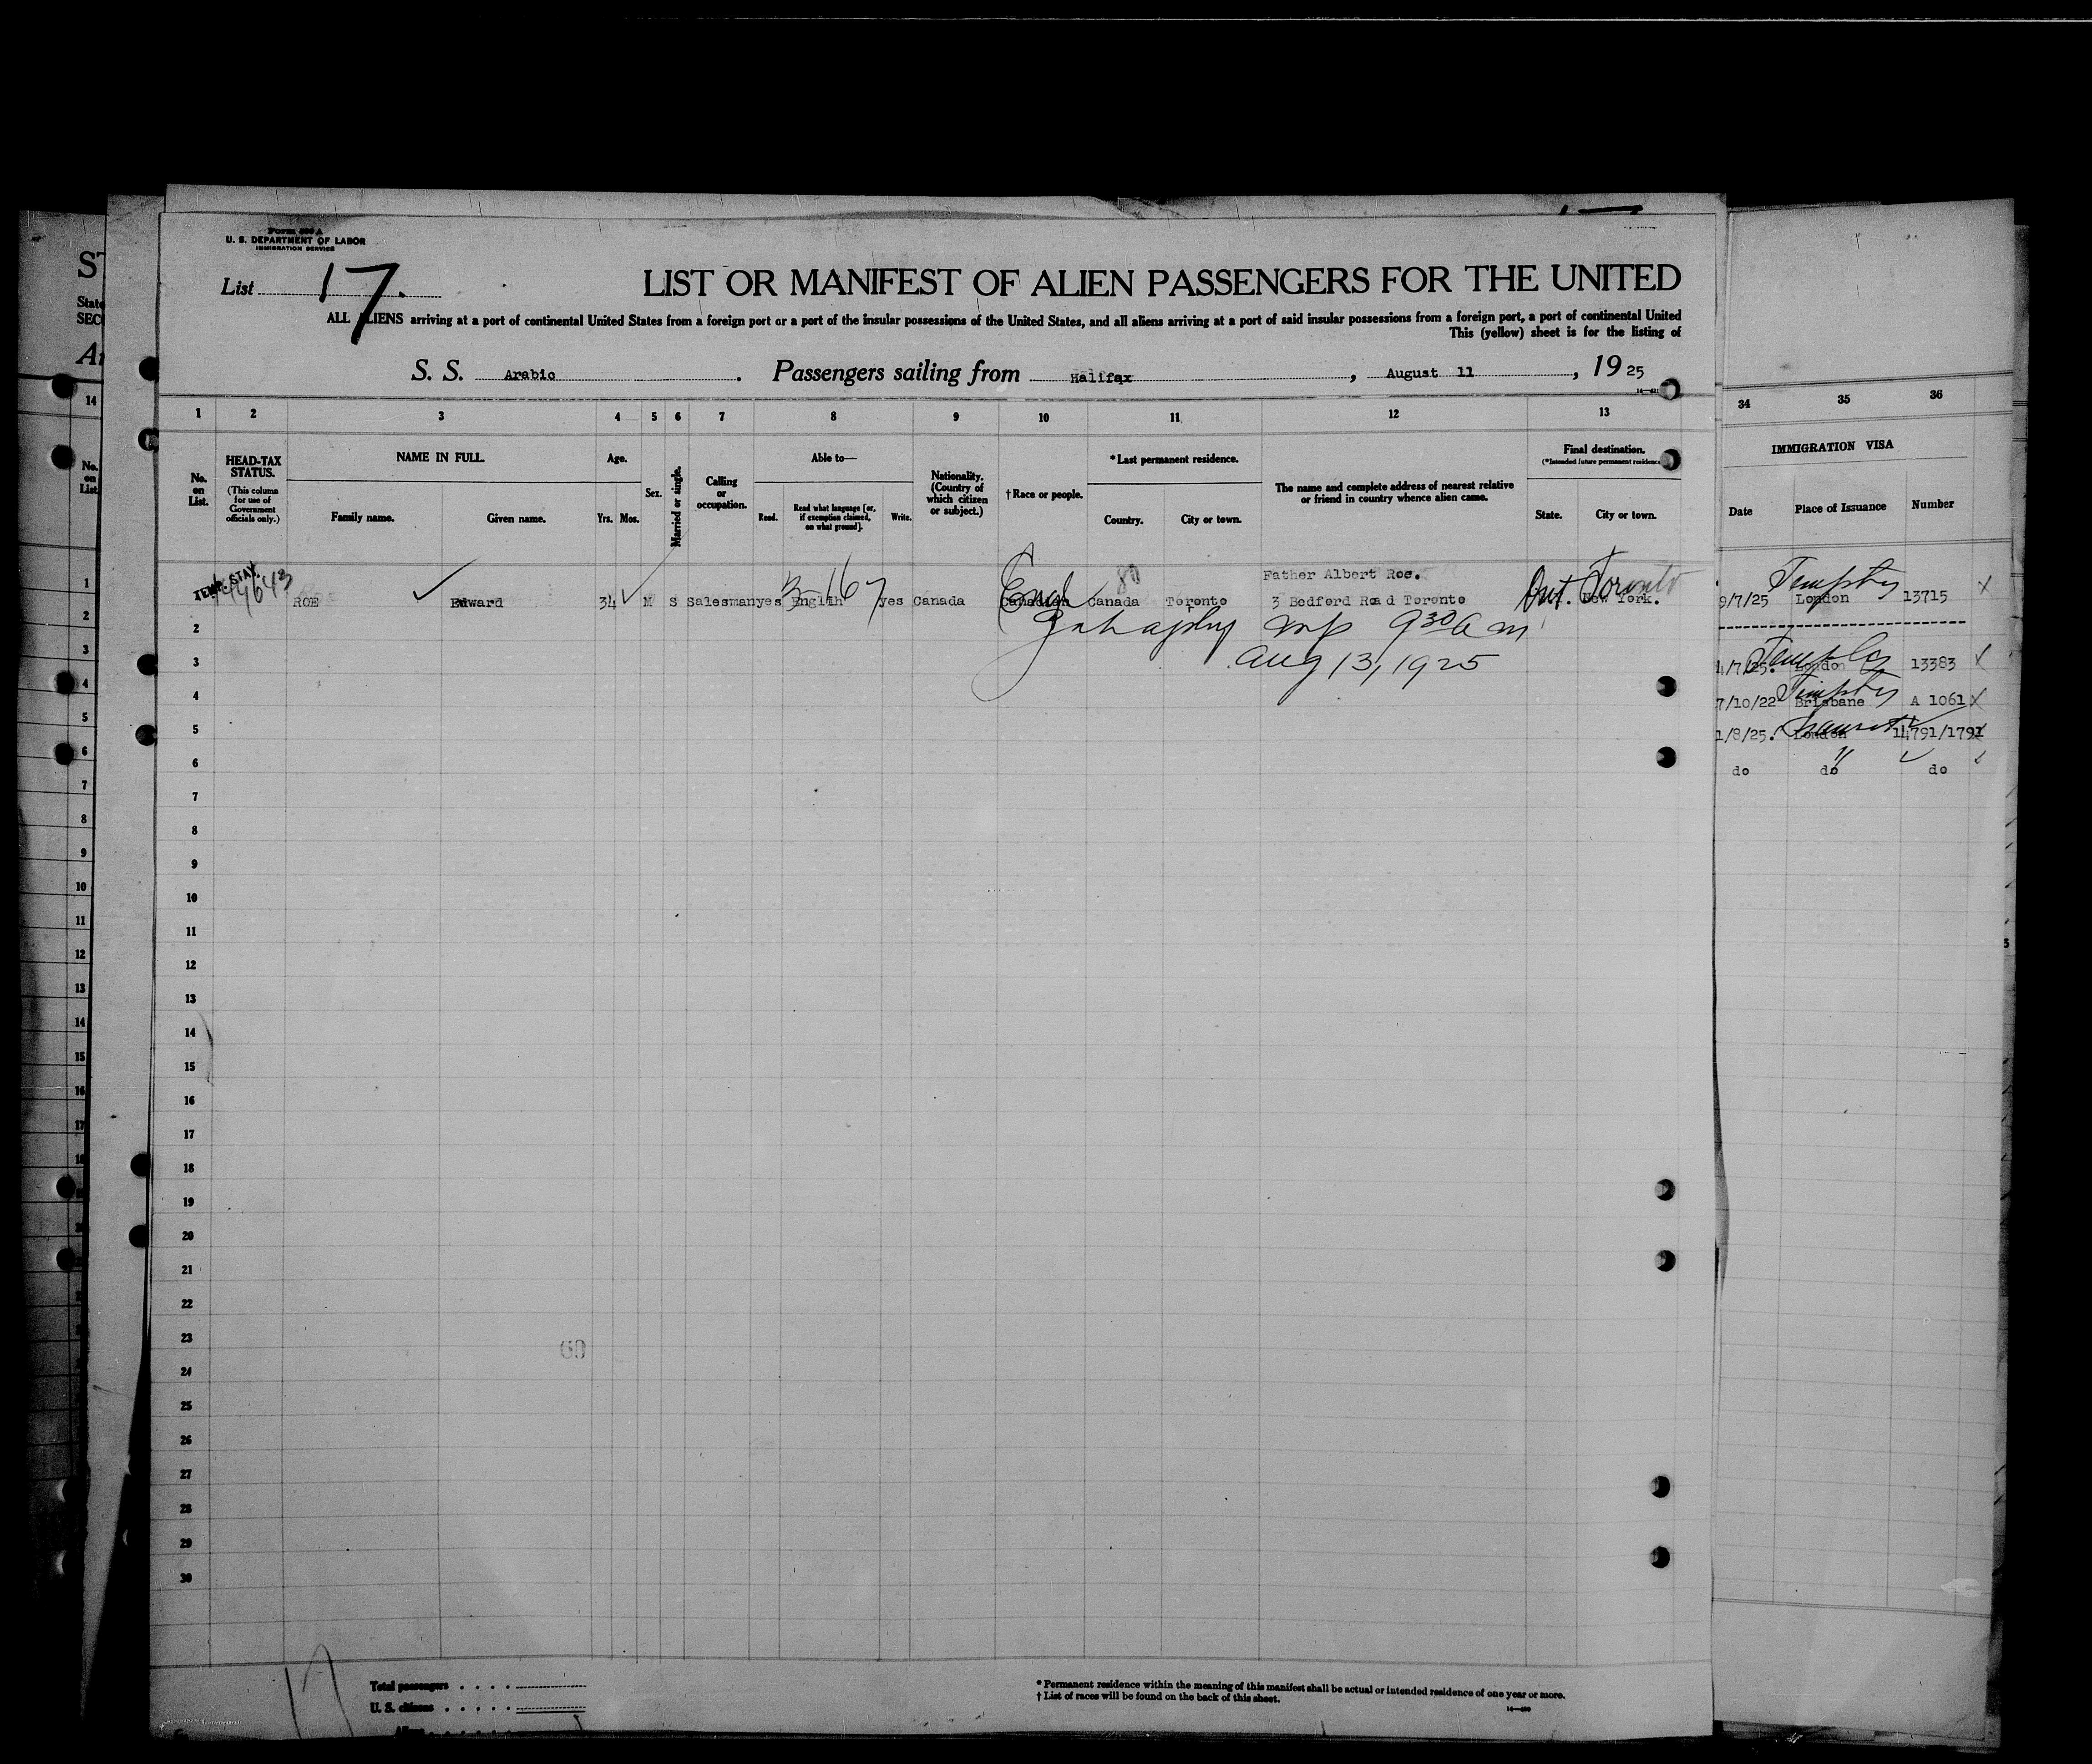 Form 500 A
U. S. DEPARTMENT OF LABOR
IMMIGRATION SERVICE
List 17.
LIST OR MANIFEST OF ALIEN PASSENGERS FOR THE UNITED
ALL ALIENS arriving at a port of continental United States from a foreign port or a port of the insular possessions of the United States, and all aliens arriving at a port of said insular possessions from a foreign port, a port of continental United
This (yellow) sheet is for the listing of
S. S. Arabic . Passengers sailing from Halifax , August 11 , 19 25
1 2 3 4 5 6 7 8 9 10 11 12 13
No. on List.
HEAD-TAX STATUS.
(This column for use of Government officials only.)
NAME IN FULL.
Family name. Given name.
Age.
Yrs. Mos.
Sex.
Married or single.
Calling or occupation.
Able to—
Read. Read what language [or, if exemption claimed, on what ground]. Write.
Nationality. (Country of which citizen or subject.)
† Race or people.
* Last permanent residence.
Country. City or town.
The name and complete address of nearest relative or friend in country whence alien came.
Final destination.
(*Intended future permanent residence)
State. City or town.
TEMP. STAY.
Father Albert Roe.
1 ROE Edward 34 M S Salesman yes English yes Canada Canadian Canada Toronto 3 Bedford Road Toronto New York.
3-167
Engl
80
Ont. Toronto
930 a m
Aug 13, 1925
2
3
4
5
6
7
8
9
10
11
12
13
14
15
16
17
18
19
20
21
22
23
24
25
26
27
28
29
30
60
17
Total passengers
U. S. citizens
Aliens
* Permanent residence within the meaning of this manifest shall be actual or intended residence of one year or more.
† List of races will be found on the back of this sheet.
34 35 36
IMMIGRATION VISA
Date Place of Issuance Number
9/7/25 London 13715
4/7/25. London 13383
7/10/22 Brisbane A 1061
1/8/25. London 14791/1791
do do do
ST
State
SEC
14
No. on List
1
2
3
4
5
6
7
8
9
10
11
12
13
14
15
16
17
18